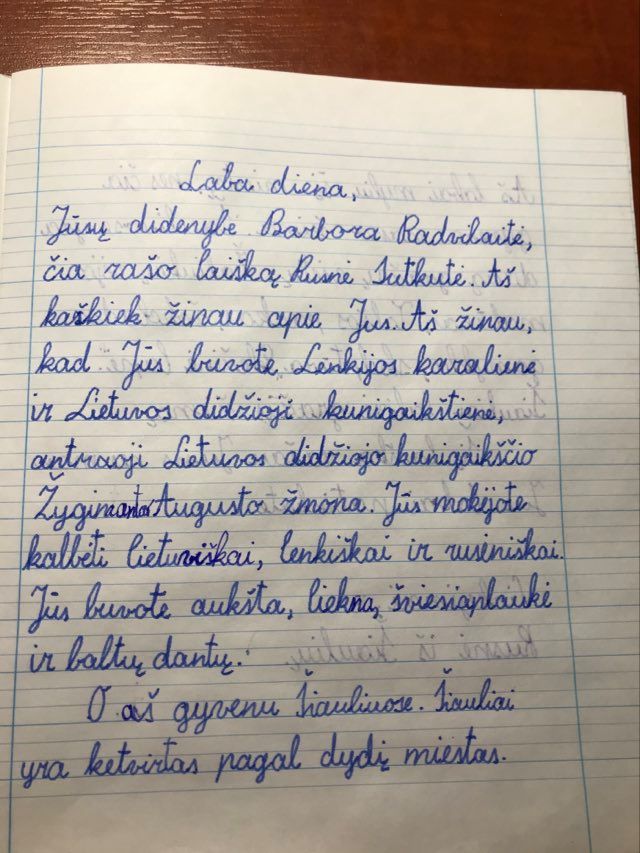 Laba diena,
Jūsų didenybė Barbora Radvilaitė,
čia rašo laišką Rusnė Sutkutė. Aš
kažkiek žinau apie Jus. Aš žinau,
kad Jūs buvote Lenkijos karalienė
ir Lietuvos didžioji kunigaikštienė,
antraoji Lietuvos didžiojo kunigaikščio
Žygimanto Augusto žmona. Jūs mokėjote
kalbėti lietuviškai, lenkiškai ir rusėniškai.
Jūs buvote aukšta, liekna, šviesiaplaukė
ir baltų dantų.
O aš gyvenu Šiauliuose. Šiauliai
yra ketvirtas pagal dydį miestas.